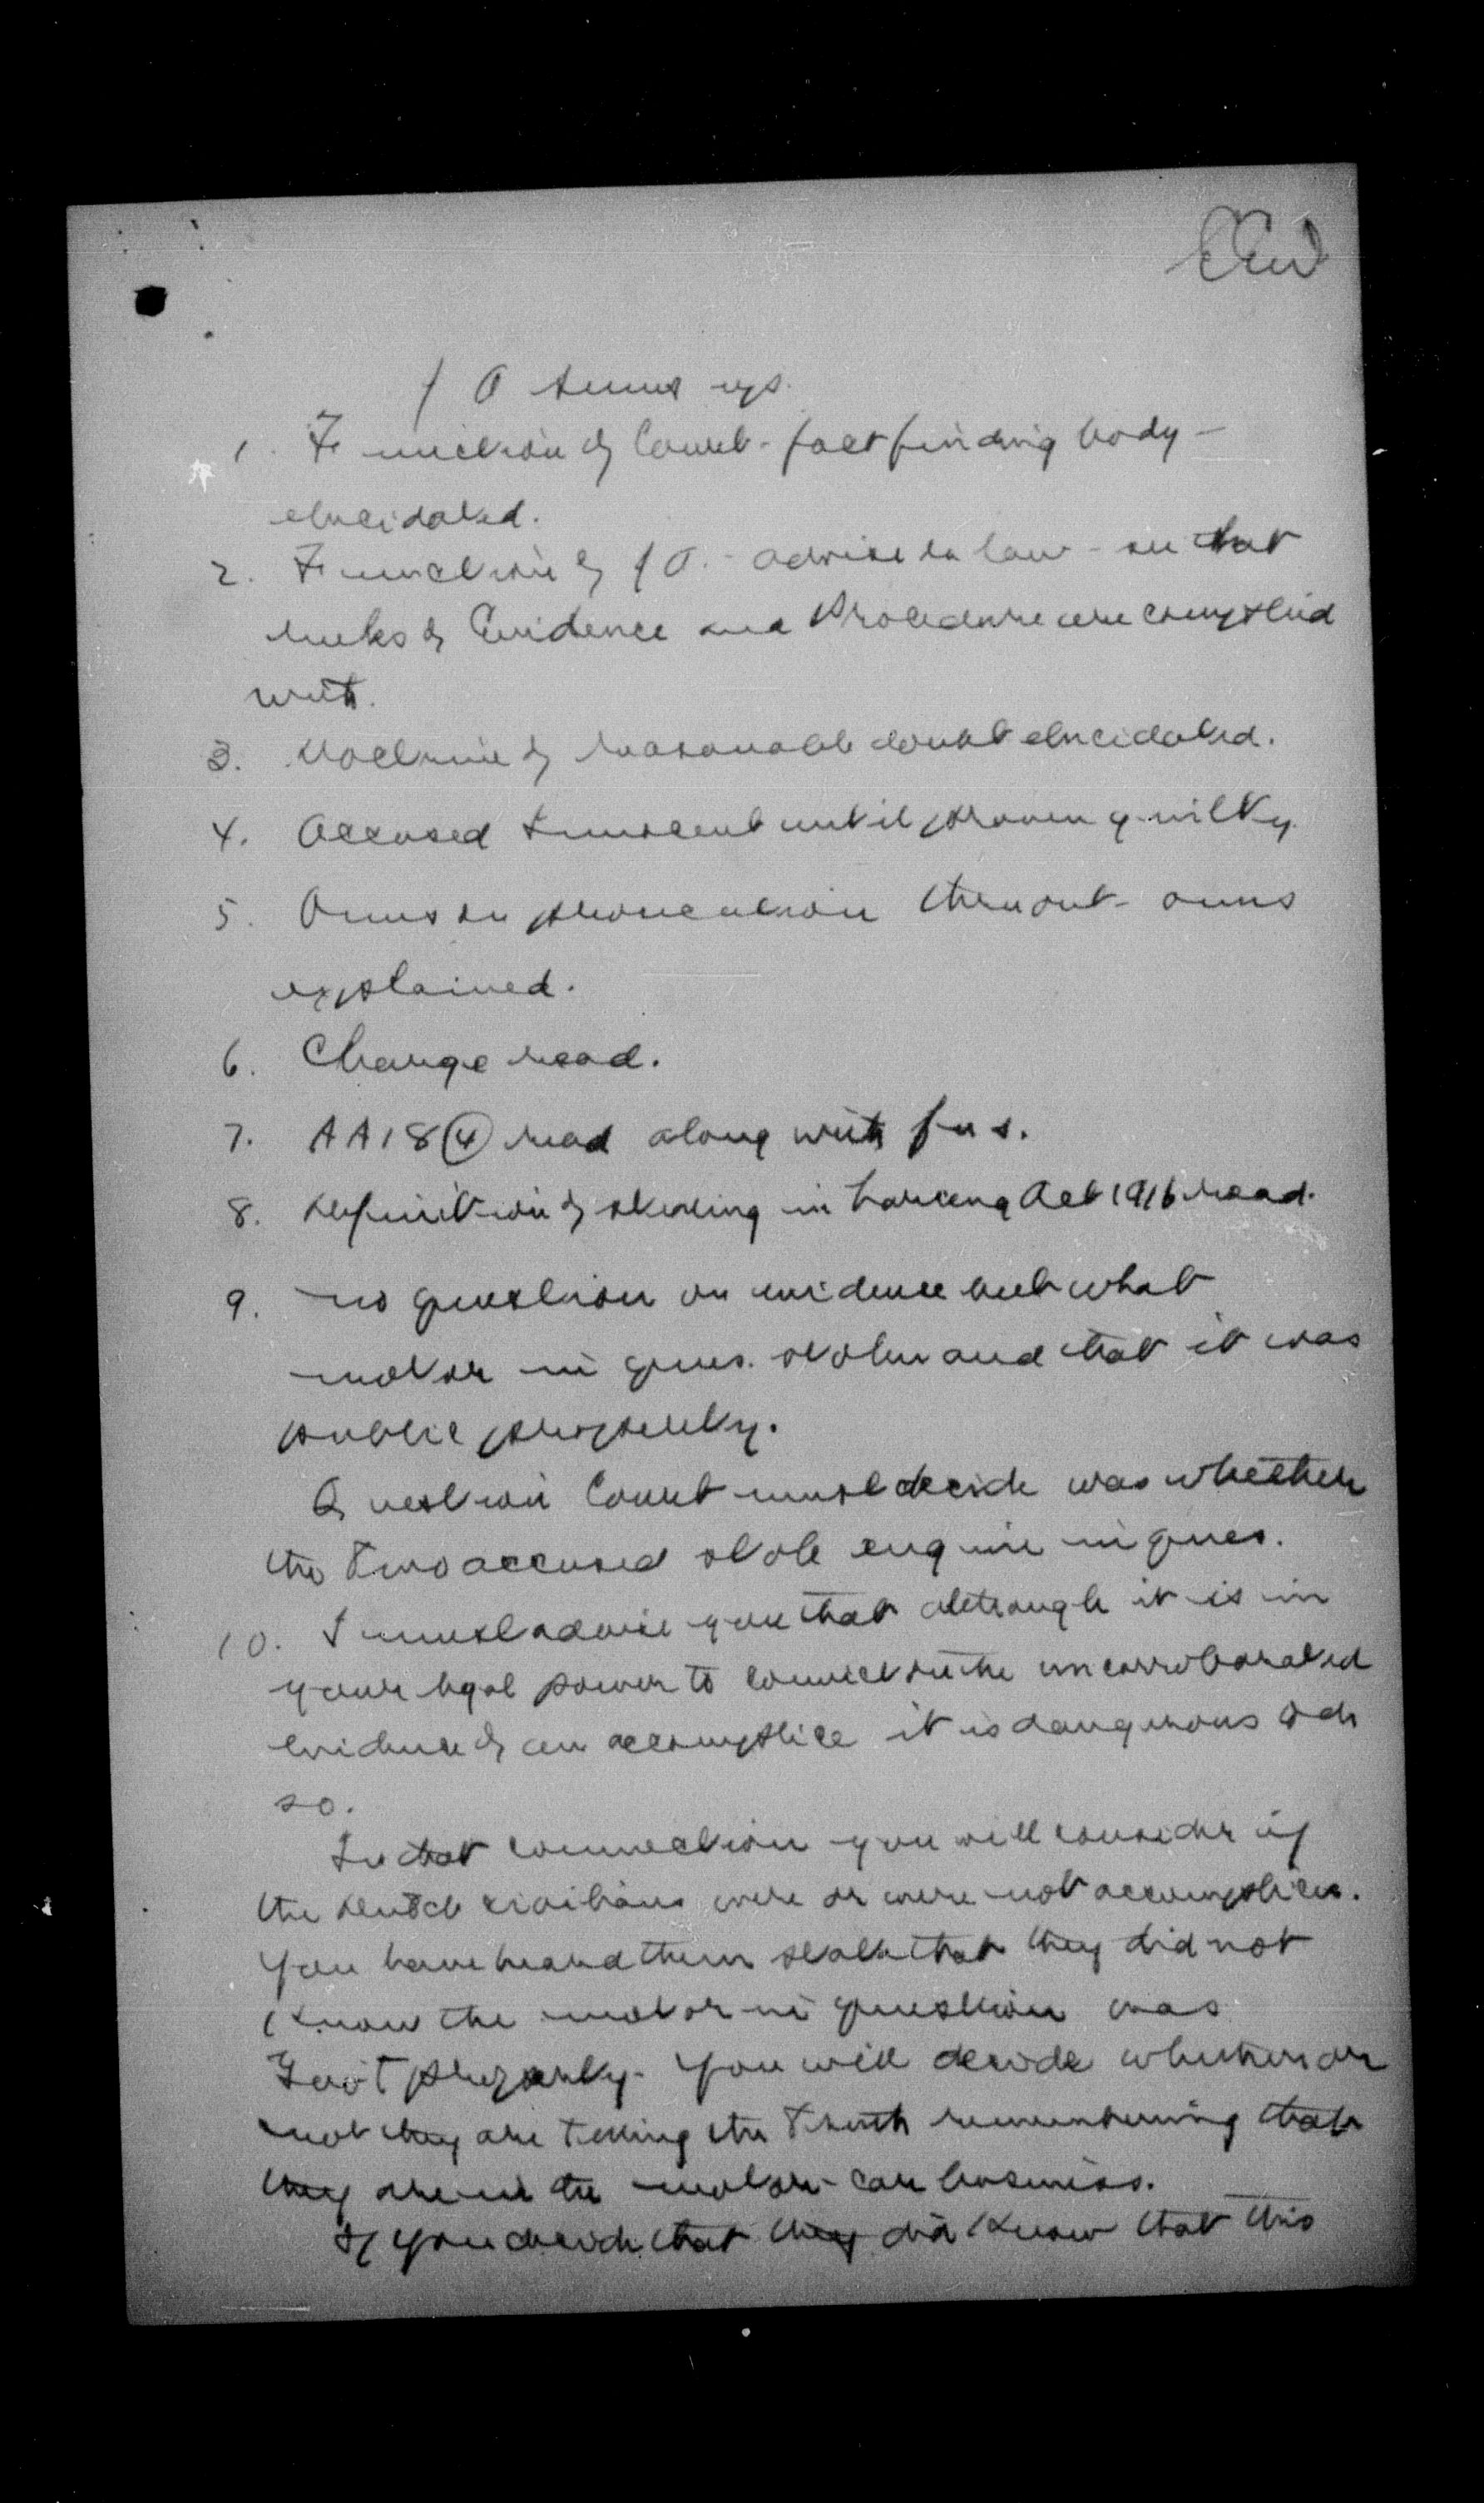 JA sums up.
1. Function of Court - fact finding body -
elucidated.
2. Function of JA. - advise on law - see that
rules of Evidence and Procedure are complied
with.
3. Doctrine of reasonable doubt elucidated.
4. Accused innocent until proven guilty.
5. Onus on prosecution thruout - onus
explained.
6. Charge read.
7. AA 18 (4) read along with fns.
8. Definition of stealing in Larceny Act 1916 read.
9. No question on evidence but what
motor in ques. stolen and that it was
public property.
Question Court must decide was whether
the two accused stole engine in ques.
10. I must advise you that although it is in
your legal power to convict on the uncorroborated
evidence of an accomplice it is dangerous to do
so.
In that connection you will consider if
the Dutch civilians were or were not accomplices.
You have heard them state that they did not
know the motor in question was
Govt property. You will decide whether or
not they are telling the truth remembering that
they are in the motor car business.
If you decide that they did know that this